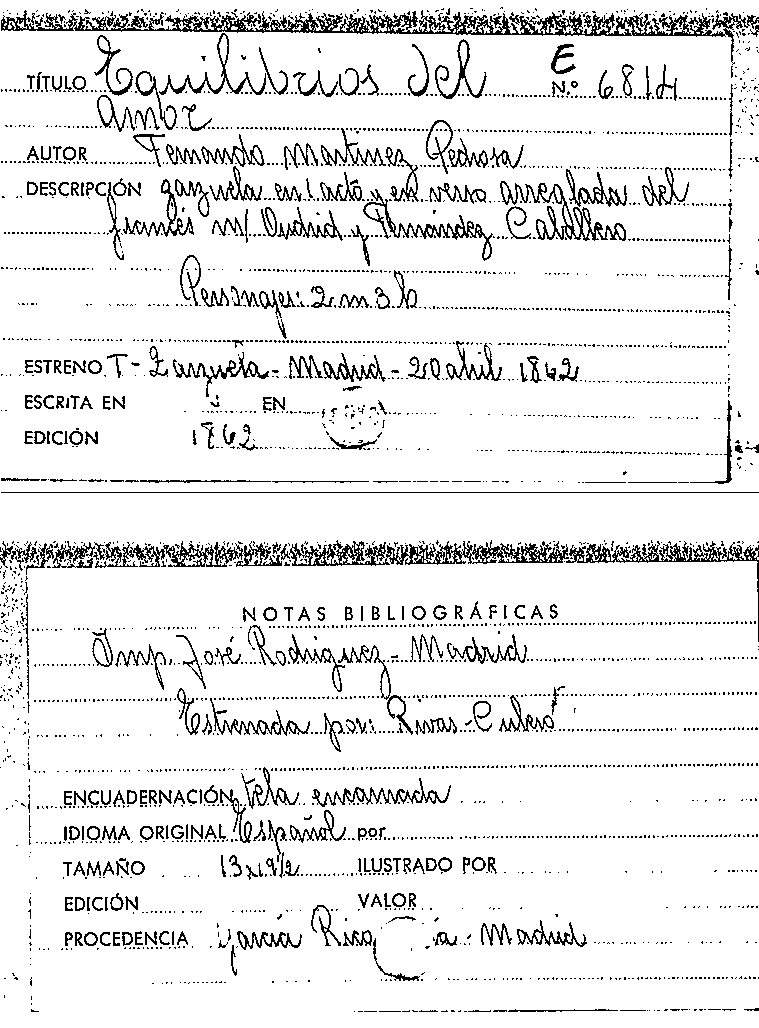 TÍTULO Equilibrios del E N.º 6814
amor
AUTOR Fernando Martinez Pedrosa
DESCRIPCIÓN zarzuela en 1 acto y en verso arreglada del
francés m/ Oudrid y Fernández Caballero
Personajes: 2 m 3 h
ESTRENO T - Zarzuela - Madrid - 20 abril 1862
ESCRITA EN EN
EDICIÓN 1862
NOTAS BIBLIOGRÁFICAS
Imp. José Rodriguez - Madrid
Estrenada por: Rivas -
ENCUADERNACIÓN tela encarnada
IDIOMA ORIGINAL Español por
TAMAÑO 13x19½ ILUSTRADO POR
EDICIÓN VALOR
PROCEDENCIA García Rico - Madrid